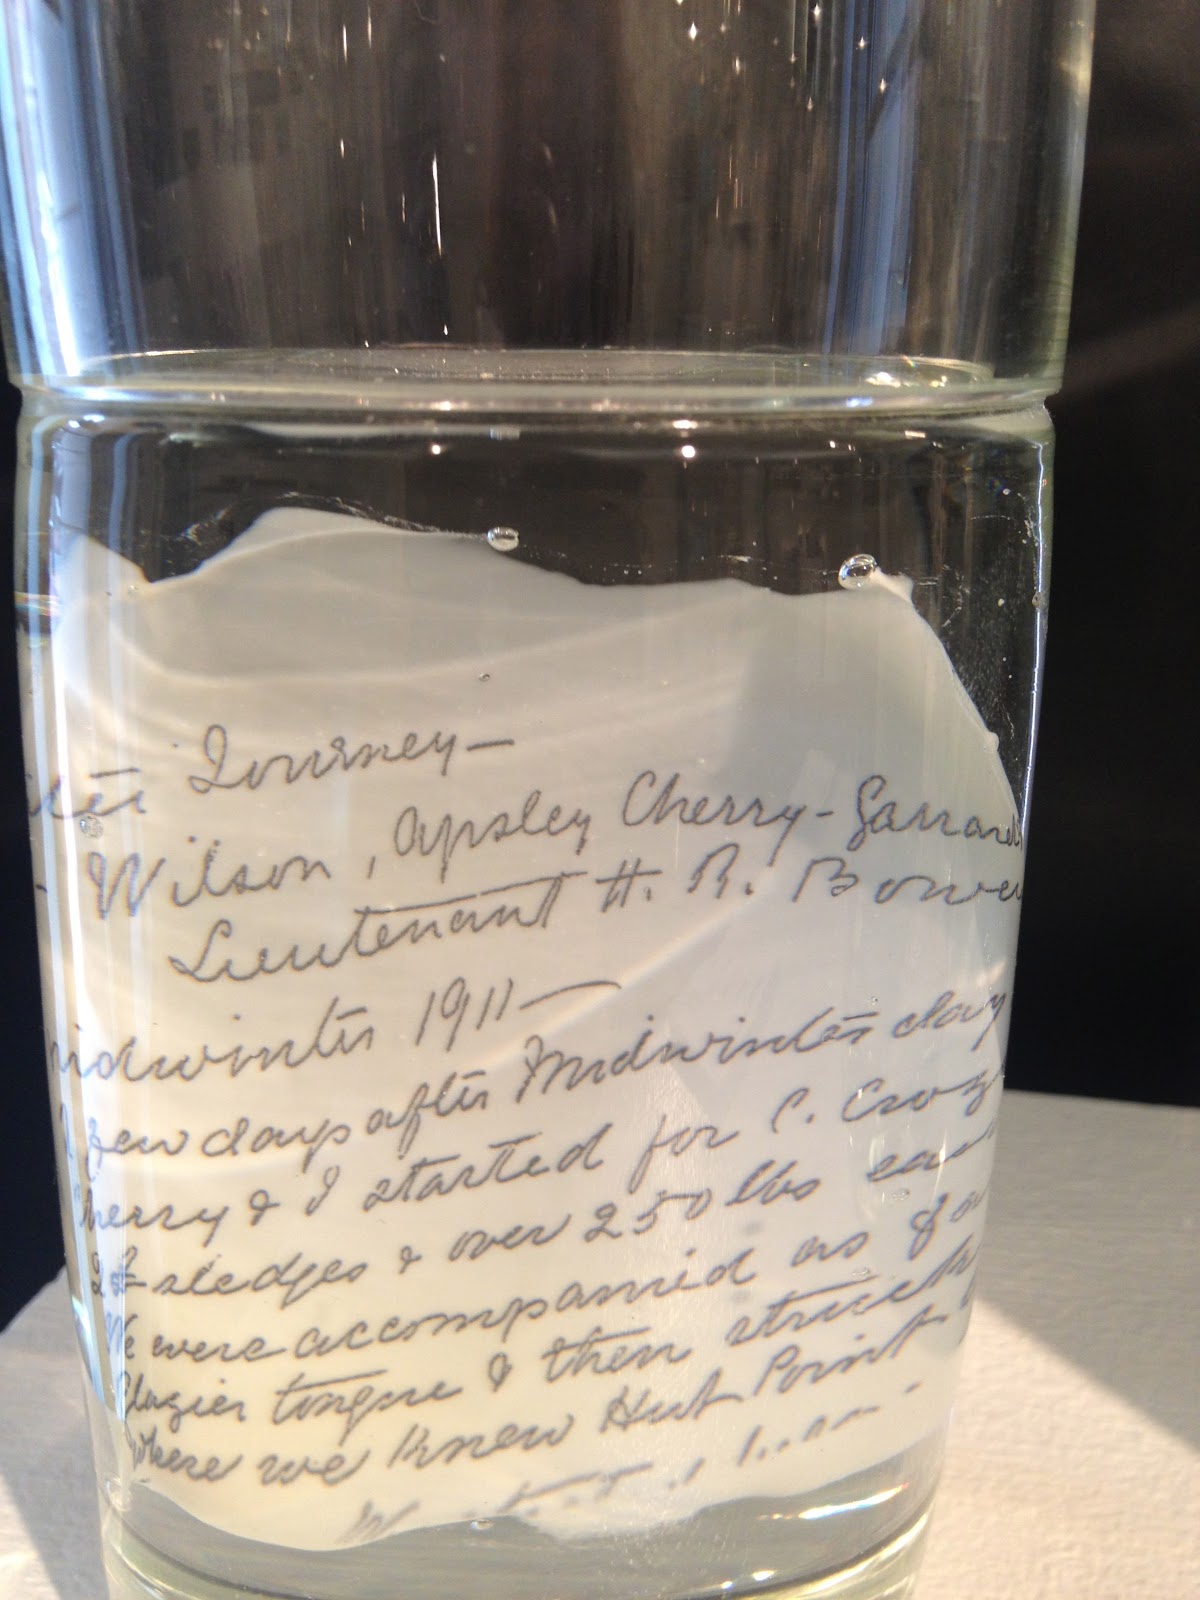 Journey—
Wilson, Apsley Cherry-Garrard
Lieutenant H. R. Bowe
midwinter 1911—
A few days after Midwinter day
Cherry & I started for C. Croz
2 sledges & over 250 lbs eac
We were accompanied as far
Glazier tongue & then struck
where we knew Hut Point